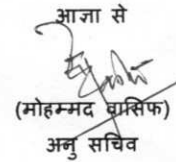 आज्ञा से
(मोहम्मद वासिफ)
अनु सचिव